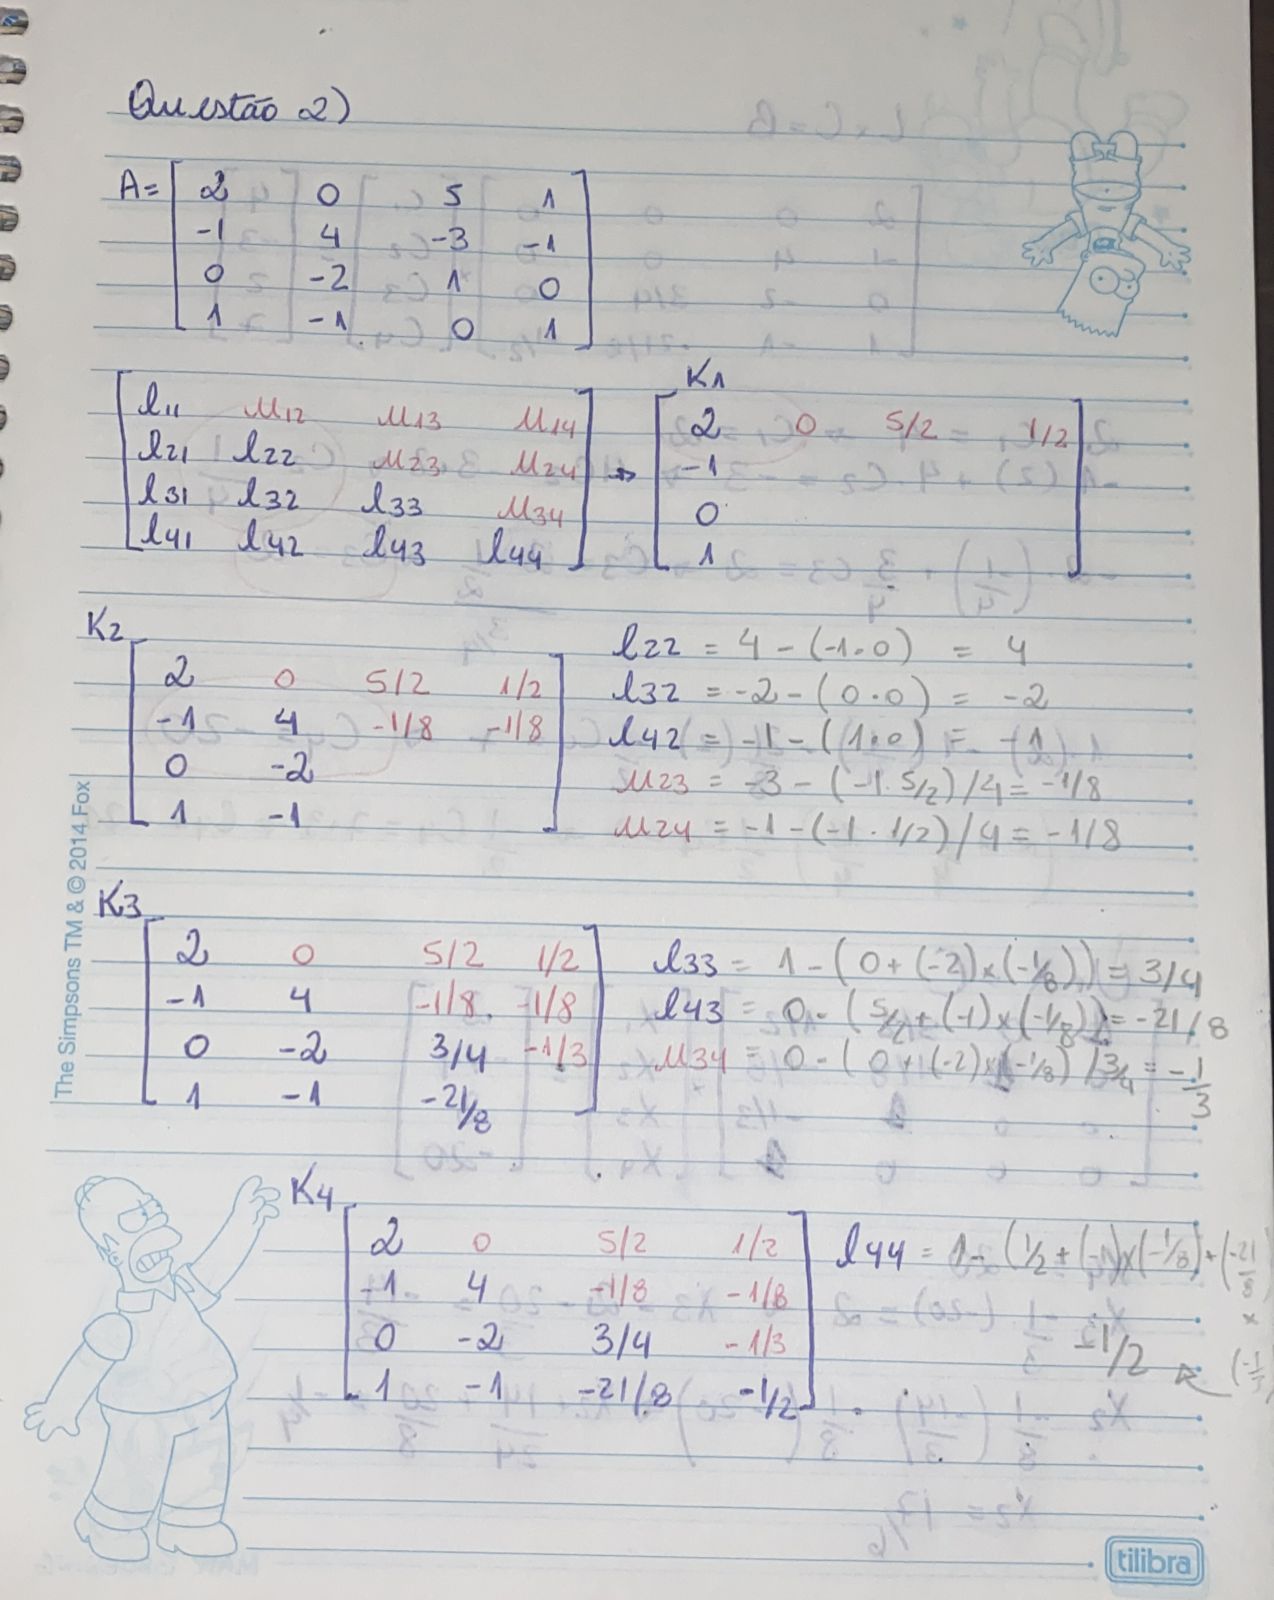 Questão 2)
A= 2 0 5 1
-1 4 -3 -1
0 -2 1 0
1 -1 0 1
l11 u12 u13 u14
l21 l22 u23 u24
l31 l32 l33 u34
l41 l42 l43 l44
→
K1
2 0 5/2 1/2
-1
0
1
K2
2 0 5/2 1/2
-1 4 -1/8 -1/8
0 -2
1 -1
l22 = 4 - (-1·0) = 4
l32 = -2 - (0·0) = -2
l42 = -1 - (1·0) = -1
u23 = -3 - (-1·5/2)/4 = -1/8
u24 = -1 - (-1·1/2)/4 = -1/8
K3
2 0 5/2 1/2
-1 4 -1/8 -1/8
0 -2 3/4 -1/3
1 -1 -21/8
l33 = 1 - (0 + (-2)×(-1/8)) = 3/4
l43 = 0 - (5/2 + (-1)×(-1/8)) = -21/8
u34 = 0 - (0 + (-2)×(-1/8)) / 3/4 = -1/3
K4
2 0 5/2 1/2
-1 4 -1/8 -1/8
0 -2 3/4 -1/3
1 -1 -21/8 -1/2
l44 = 1 - (1/2 + (-1)×(-1/8) + (-21/8
×
-1/2
The Simpsons TM & © 2014 Fox
tilibra